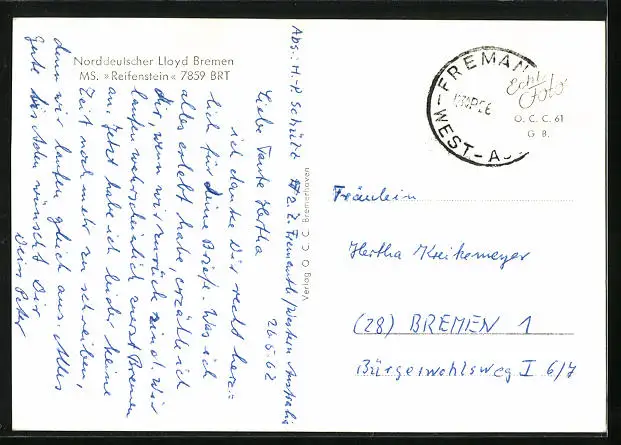 Norddeutscher Lloyd Bremen
MS. »Reifenstein« 7859 BRT
Abs.: H.-P. Schütt z. Z. Fremantle/Western Australia
26.5.62
Liebe Tante Hertha
ich danke Dir recht herz=
lich für Deine Briefe. Was ich
alles erlebt habe, erzähle ich
Dir, wenn wir zurück sind. Wir
laufen wahrscheinlich zuerst Bremen
an. Jetzt habe ich leider keine
Zeit noch mehr zu schreiben,
denn wir laufen gleich aus. Alles
Gute bis Aden wünscht Dir
Dein Peter
Verlag O. C. C. Bremerhaven
FREMAN
WEST-A
Echt
Foto
O. C. C. 61
G B.
Fräulein
Hertha Kreikemeyer
(28) BREMEN 1
Bürgerwohlsweg I 6/7